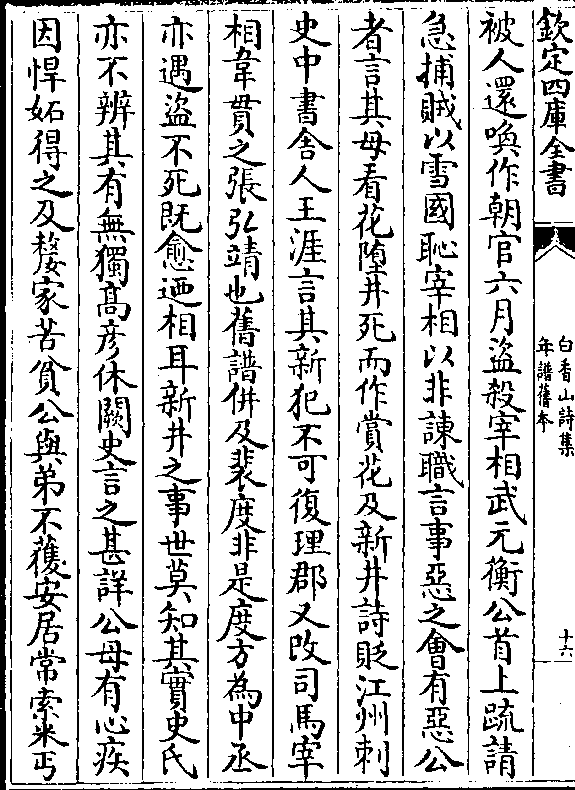 欽定四庫全書
白香山詩集
年譜舊本
十六
被人還喚作朝官六月盜殺宰相武元衡公首上疏請
急捕賊以雪國恥宰相以非諫職言事惡之會有惡公
者言其母看花墮井死而作賞花及新井詩貶江州刺
史中書舍人王涯言其新犯不可復理郡又改司馬宰
相韋貫之張弘靖也舊譜併及裴度非是度方為中丞
亦遇盜不死既愈迺相耳新井之事世莫知其實史氏
亦不辨其有無獨髙彦休闕史言之甚詳公母有心疾
因悍妬得之及嫠家苦貧公與弟不獲安居常索米丐